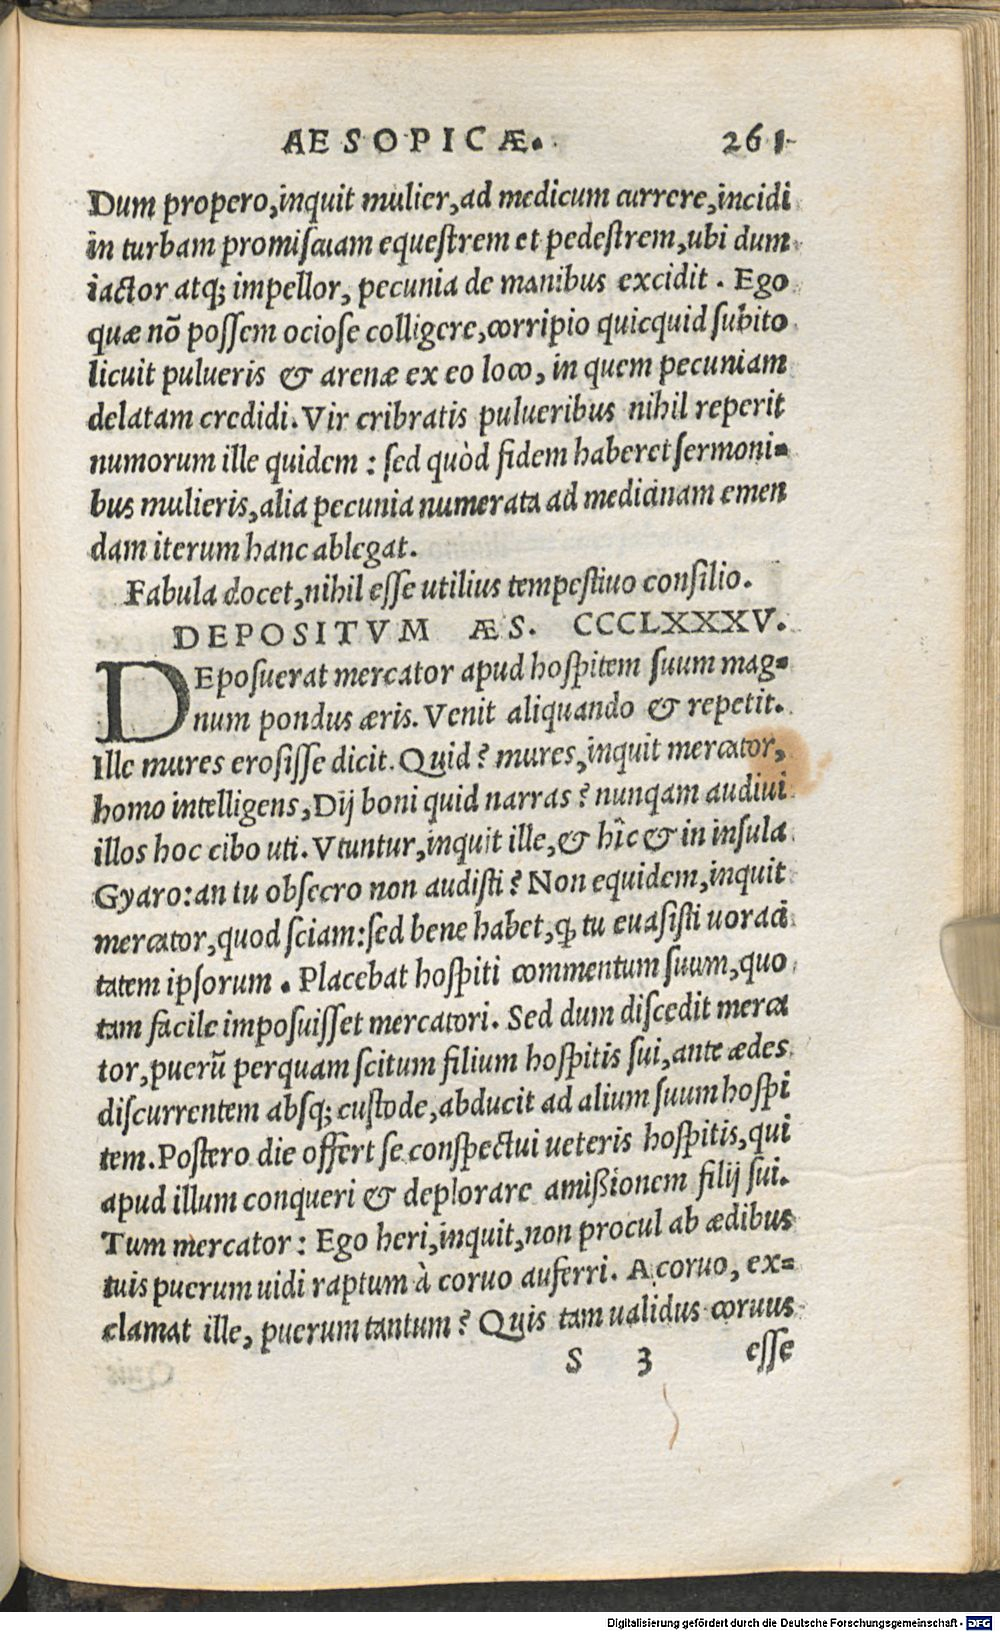 AESOPICÆ. 261
Dum propero, inquit mulier, ad medicum currere, incidi
in turbam promiscuam equestrem et pedestrem, ubi dum
iactor atq; impellor, pecunia de manibus excidit. Ego
quæ nõ possem ociose colligere, corripio quicquid subito
licuit pulueris & arenæ ex eo loco, in quem pecuniam
delatam credidi. Vir cribratis pulueribus nihil reperit
numorum ille quidem : sed quòd fidem haberet sermoni=
bus mulieris, alia pecunia numerata ad medicinam emen
dam iterum hanc ablegat.
Fabula docet, nihil esse utilius tempestiuo consilio.
DEPOSITVM ÆS. CCCLXXXV.
DEposuerat mercator apud hospitem suum mag=
num pondus æris. Venit aliquando & repetit.
Ille mures erosisse dicit. Quid? mures, inquit mercator,
homo intelligens, Dij boni quid narras? nunqam audiui
illos hoc cibo uti. Vtuntur, inquit ille, & hîc & in insula
Gyaro: an tu obsecro non audisti? Non equidem, inquit
mercator, quod sciam: sed bene habet, ꝙ tu euasisti uoraci
tatem ipsorum. Placebat hospiti commentum suum, quo
tam facile imposuisset mercatori. Sed dum discedit merca
tor, puerũ perquam scitum filium hospitis sui, ante ædes
discurrentem absq; custode, abducit ad alium suum hospi
tem. Postero die offert se conspectui ueteris hospitis, qui
apud illum conqueri & deplorare amißionem filij sui.
Tum mercator: Ego heri, inquit, non procul ab ædibus
tuis puerum uidi raptum à coruo auferri. A coruo, ex=
clamat ille, puerum tantum? Quis tam ualidus coruus
S 3 esse
Digitalisierung gefördert durch die Deutsche Forschungsgemeinschaft - DFG